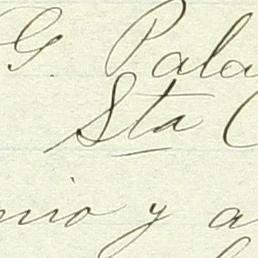 G. Pala
Sta C
nio y a